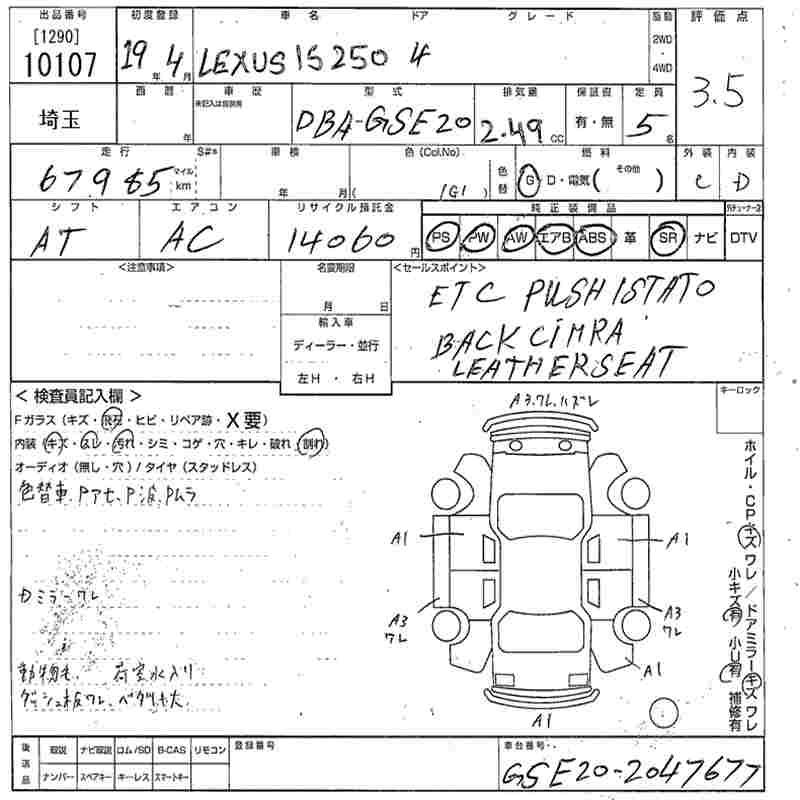 出品番号 初度登録 車名 ドア グレード 駆動 評価点
[1290]
10107
19年 4月 LEXUS IS 250 4
2WD
・
4WD
3.5
埼玉
西暦 車歴 型式 排気量 保証書 定員
未記入は自家用
年 DBA-GSE20 2.49 CC 有・無 5名
走行 S#* 車検 色(Col.No) 色替 燃料 外装 内装
67985 マイル km 年 月 ( /GI ) G・D・電気( その他 ) C D
シフト エアコン リサイクル預託金 純正装備品
AT AC 14060円 PS PW AW エアB ABS 革 SR ナビ DTV
<注意事項> 名変期限 <セールスポイント>
月 日
輸入車
ディーラー・並行
左H ・ 右H
ETC PUSH ISTATO
BACK CIMRA
LEATHERSEAT
< 検査員記入欄 > キーロック
Fガラス(キズ・飛石・ヒビ・リペア跡・X要)
内装(キズ・スレ・汚れ・シミ・コゲ・穴・キレ・破れ・割れ)
オーディオ(無し・穴)/タイヤ(スタッドレス)
色替車、Pアセ、P波、Pムラ
Dミラーワレ
動物毛 荷室水入り
ダッシュ板ワレ、ベタリ大
A3.ワレ.ハズレ
A1 A1
A3
ワレ
A3
ワレ
A1
A1
ホイル・CPキズ ワレ/ドアミラーキズ ワレ
小キズ有 小U有 補修有
後送品 取説 ナビ取説 ロム/SD B-CAS リモコン 登録番号 車台番号
ナンバー スペアキー キーレス スマートキー
GSE20-2047677